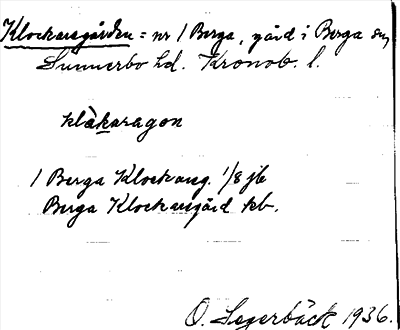 Klockaregården = nr 1 Berga, gård i Berga sn,
Sunnerbo hd. Kronob. l.
klàkaragon
1 Berga Klockareg. 1/8 jb
Berga Klockaregård kb.
O. Segerbäck 1936.